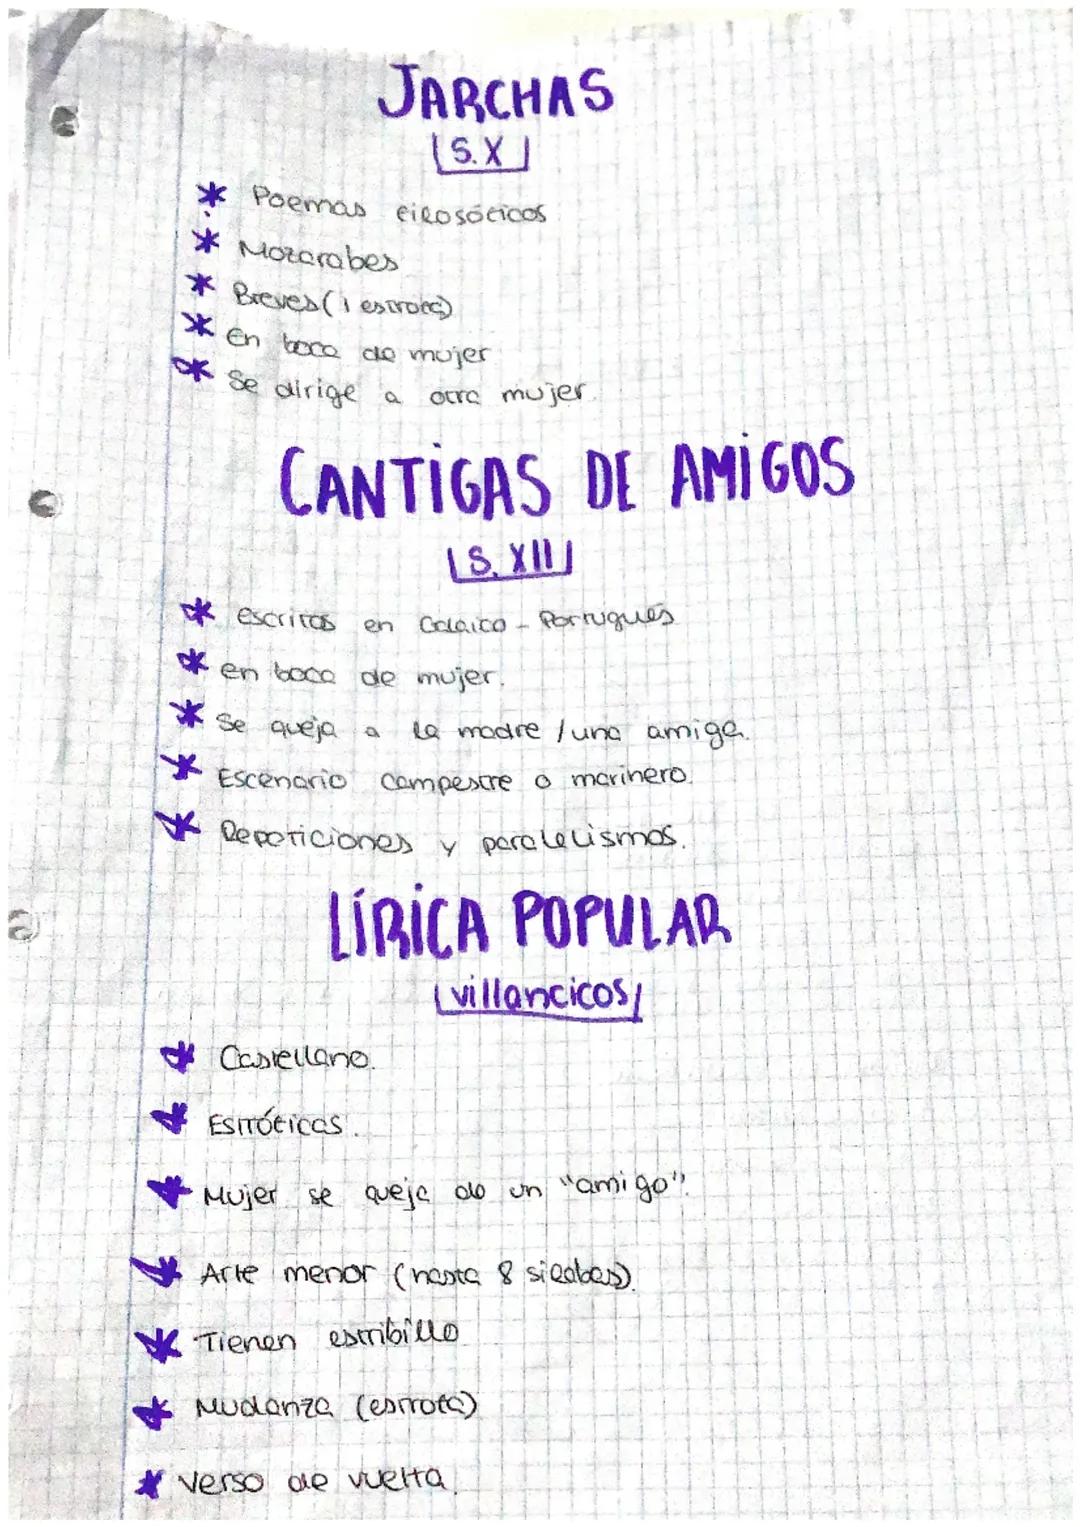 JARCHAS
S. X
* Poemas filosóficos
* Mozarabes
* Breves (1 estrofa)
* En boca de mujer
* Se dirige a otra mujer.
CANTIGAS DE AMIGOS
S. XII
* escritas en Galaico - Portugués
* en boca de mujer.
* Se queja a la madre / una amiga.
* Escenario campestre o marinero.
* Repeticiones y paralelismos.
LÍRICA POPULAR
villancicos
* Castellano.
* Estróficas.
* Mujer se queja de un "amigo".
* Arte menor (hasta 8 silabas).
* Tienen estribillo
* Mudanza (estrofa)
* Verso de vuelta.